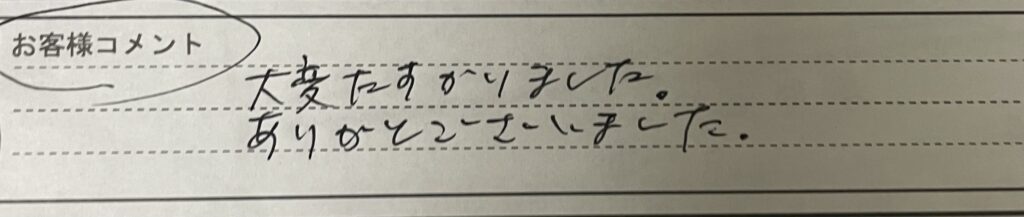 お客様コメント
大変たすかりました。
ありがとうございました.